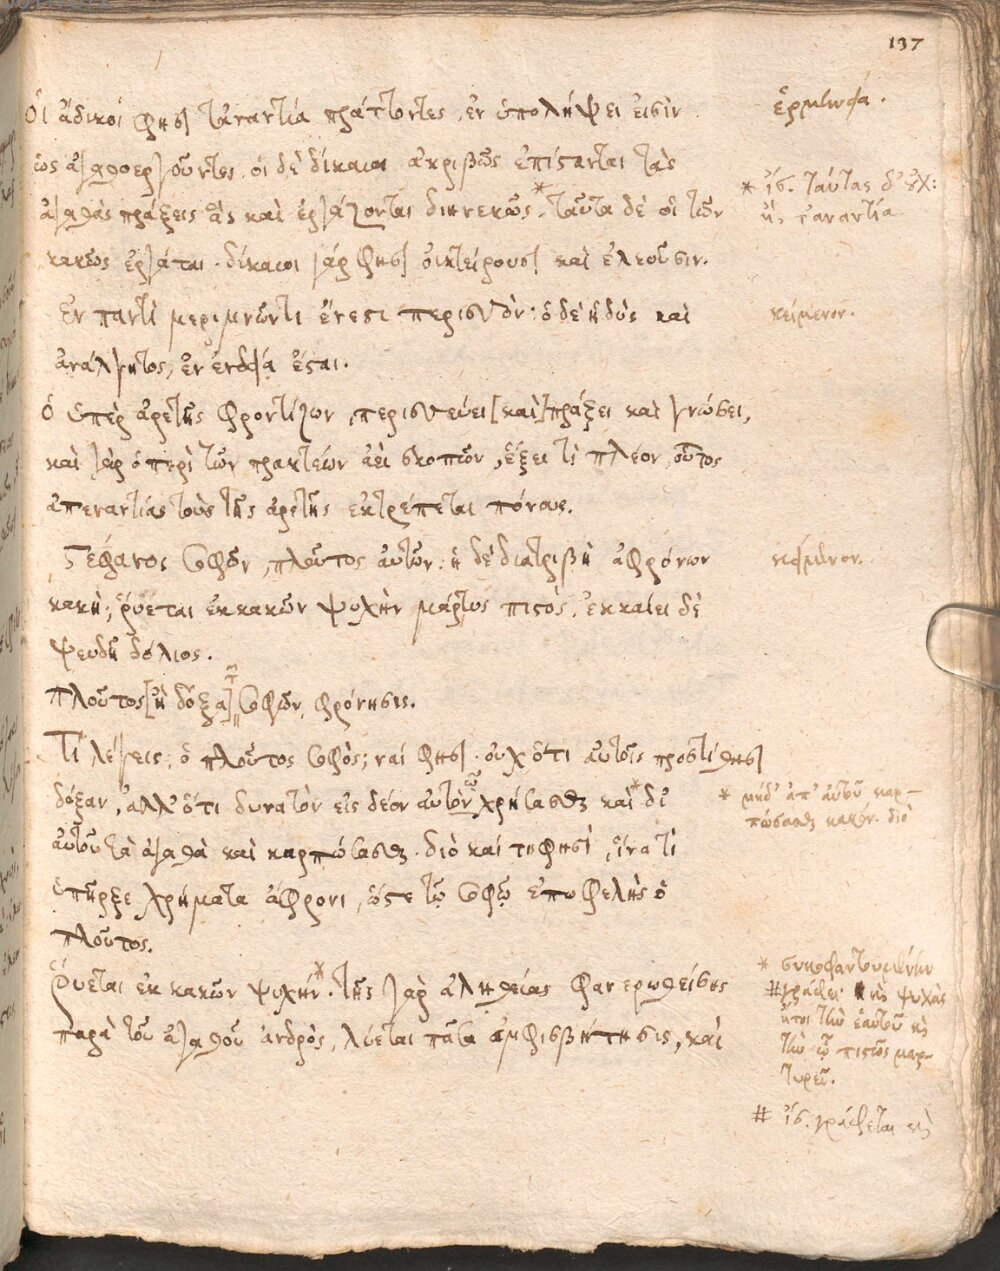 137
Οἱ ἄδικοί φησι τἀναντία πράττοντες, ἐν ὑπολήψει εἰσὶν
ὡς ἀγαθοεργοῦντες. οἱ δὲ δίκαιοι ἀκριβῶς ἐπίστανται τὰς
ἀγαθὰς πράξεις ἃς καὶ ἐργάζονται διηνεκῶς.* ταῦτα δὲ οἱ τῶν
κακῶς ἐργάται. δίκαιοι γάρ φησι οἰκτείρουσι καὶ ἐλεοῦσιν.
Ἐν παντὶ μεριμνῶντι ἔνεστι περισσόν: ὁ δὲ ἡδὺς καὶ
ἀνάλγητος, ἐν ἐνδείᾳ ἔσται.
ὁ ὑπὲρ ἀρετῆς φροντίζων, περισσεύει [καὶ] πράξει καὶ γνώσει,
καὶ γὰρ ὁ περὶ τῶν πρακτέων ἀεὶ σκοπῶν, ἕξει τὶ πλέον, οὗτος
ἀπεναντίας τοὺς τῆς ἀρετῆς ἐκτρέπεται πόνους.
Στέφανος σοφῶν, πλοῦτος αὐτῶν: ἡ δὲ διατριβὴ ἀφρόνων
κακή; ῥύεται ἐκ κακῶν ψυχὴν μάρτυς πιστός, ἐκκαίει δὲ
ψευδῆ δόλιος.
Πλοῦτος [ἢ δόξα] σοφῶν, φρόνησις.
Τί λέγεις; ὁ πλοῦτος σοφός; ναί φησι. οὐχ ὅτι αὐτοῖς προστίθησι
δόξαν, ἀλλ' ὅτι δυνατὸν εἰς δέον αὐτὸν χρήσασθαι καὶ* δι'
αὐτοῦ τὰ ἀγαθὰ καὶ καρπώσασθαι. διὸ καί φησί, ἵνα τί
ὑπῆρξε χρήματα ἄφρονι, ὥστε τῷ σοφῷ ἐπωφελὴς ὁ
πλοῦτος.
Ῥύεται ἐκ κακῶν ψυχήν.* τῆς γὰρ ἀληθείας φανερωθείσης
παρὰ τοῦ ἀγαθοῦ ἀνδρὸς, λύεται πᾶσα ἀμφισβήτησις, καὶ
ἑρμηνεία.
* ἴσ. ταύτας δ' οὐχ:
ἢ, τἀναντία.
κείμενον.
κείμενον.
* μηδ' ἀπ' αὐτοῦ καρ-
πώσασθαι κακόν. διὸ
* συκοφαντουμένην
# γράφει καὶ ψυχὰς
ἤτοι τὴν ἑαυτοῦ καὶ
τὴν ᾧ πιστῶς μαρ-
τυρεῖ.
# ἴσ. γράφεται καὶ